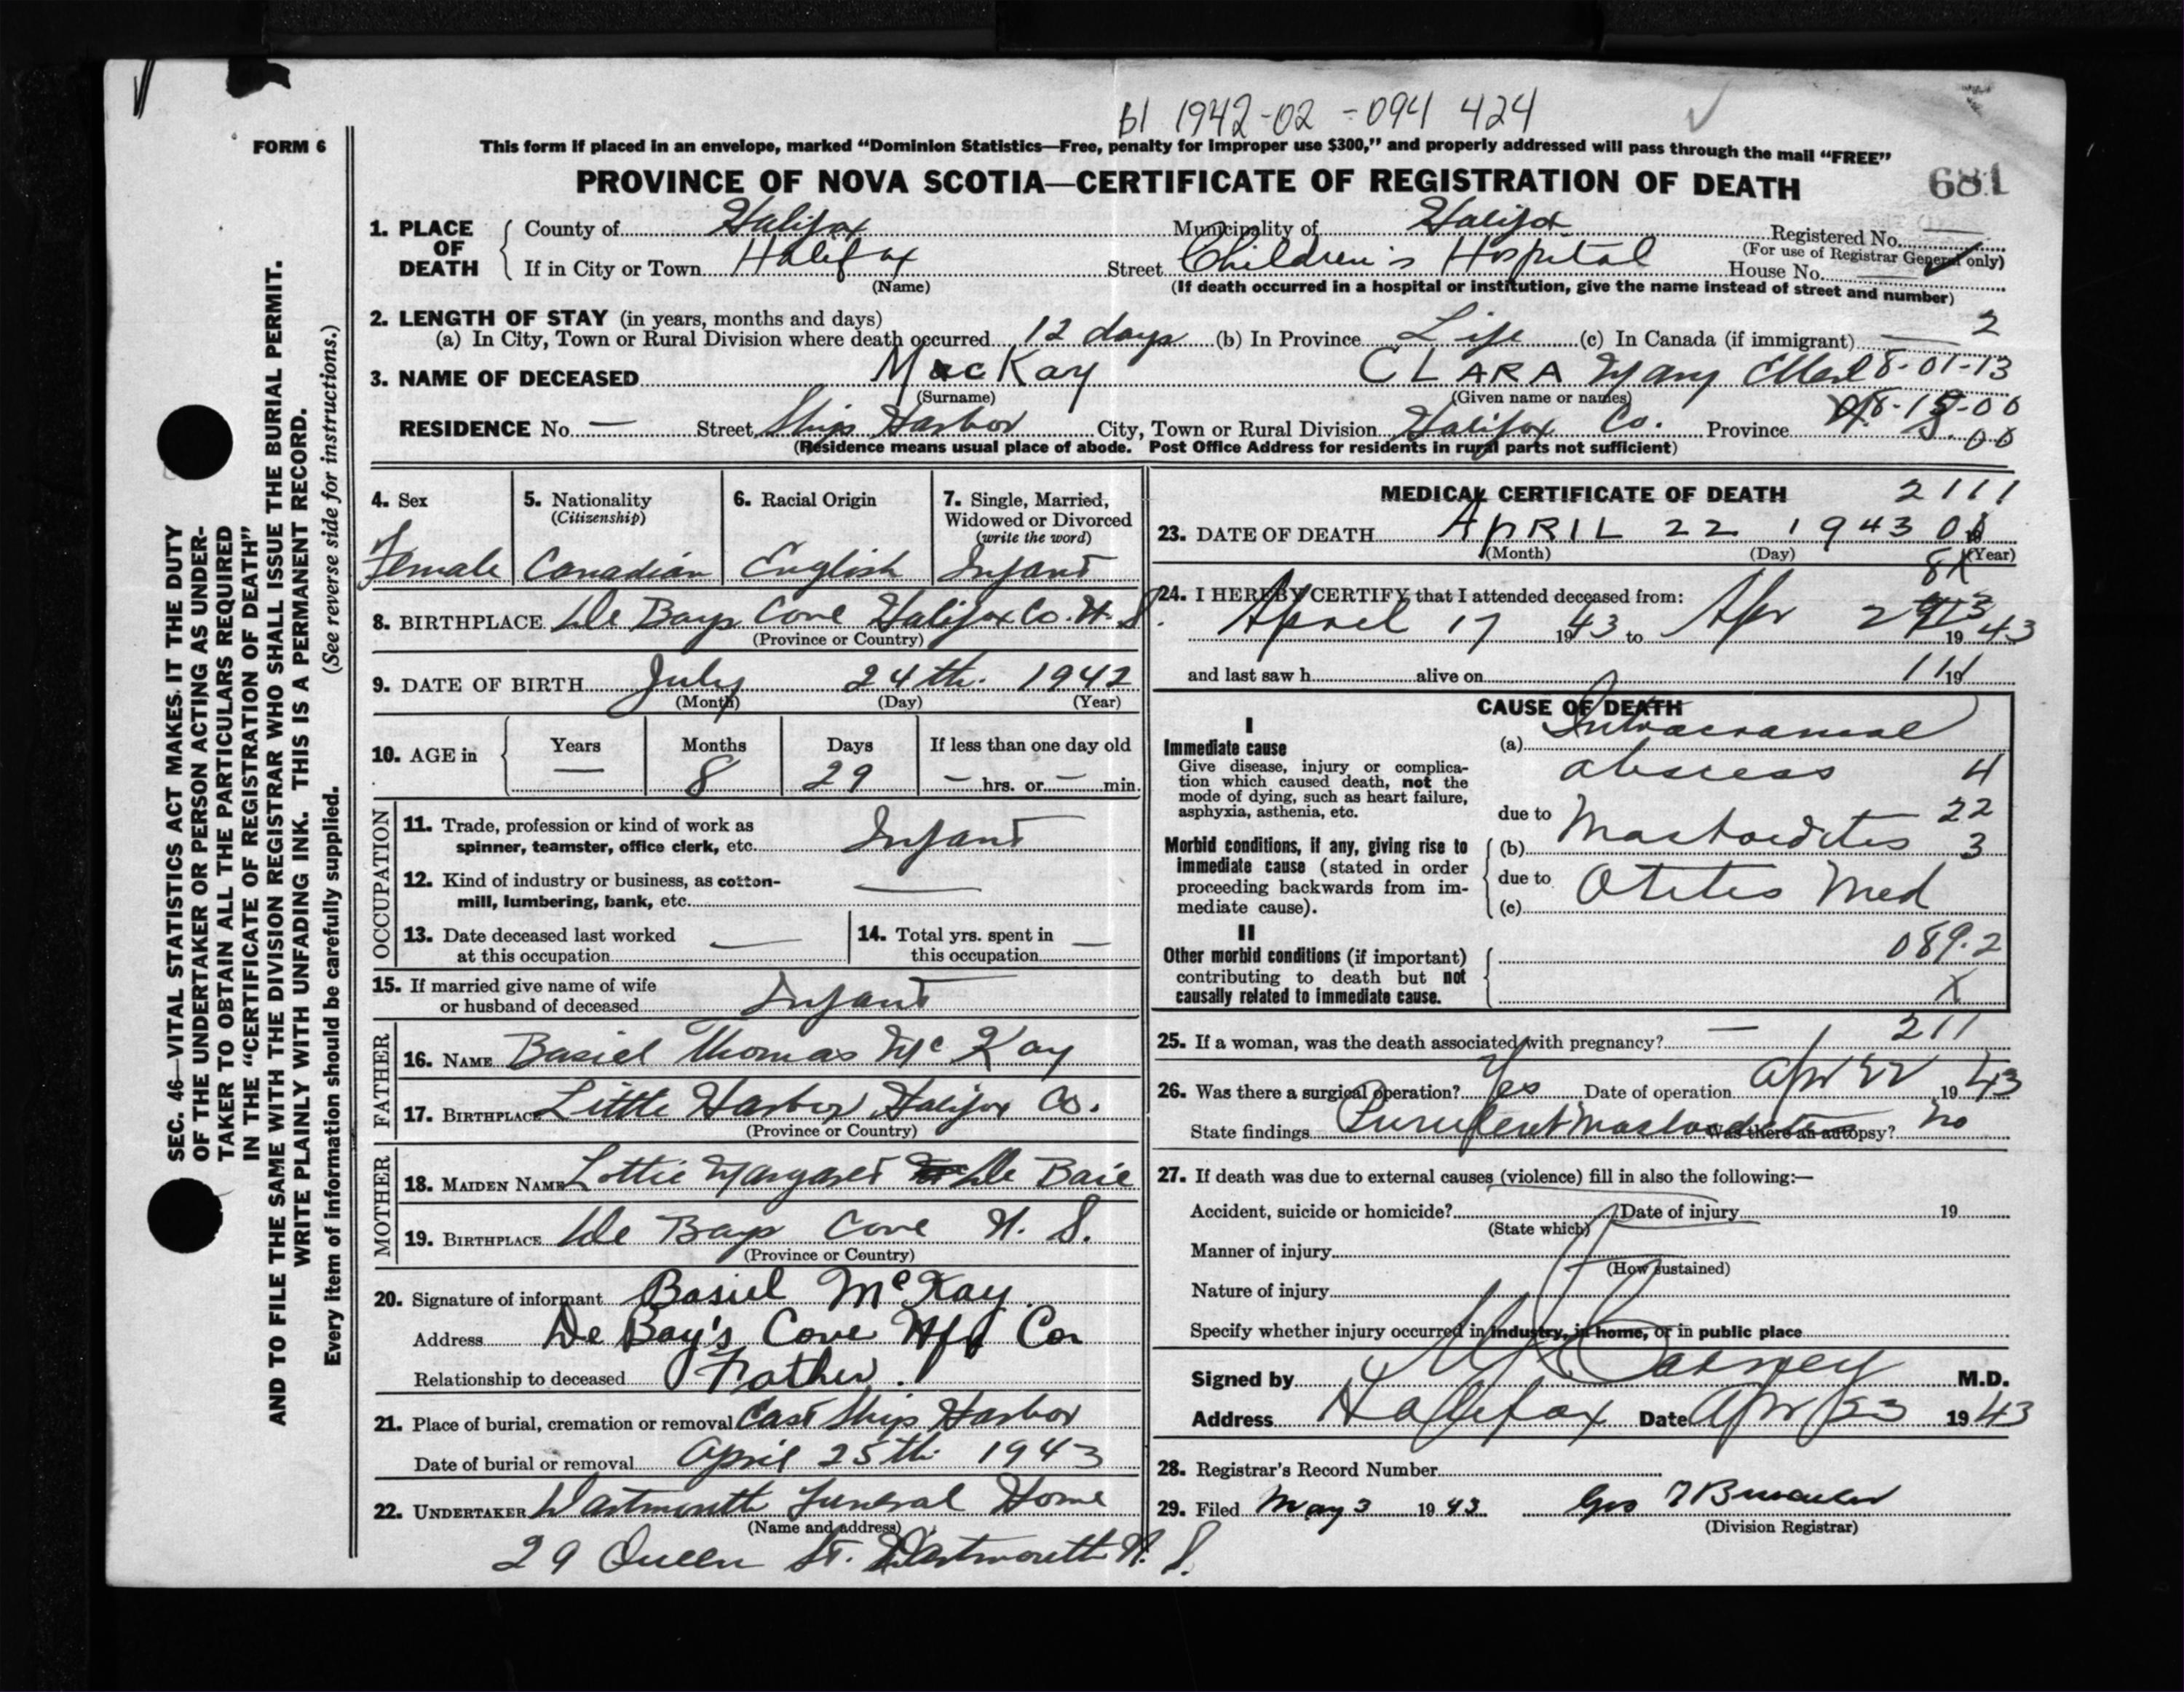 b1 1942-02-094 424
FORM 6
This form if placed in an envelope, marked “Dominion Statistics—Free, penalty for improper use $300,” and properly addressed will pass through the mail “FREE”
PROVINCE OF NOVA SCOTIA—CERTIFICATE OF REGISTRATION OF DEATH
681
1. PLACE OF DEATH
County of Halifax Municipality of Halifax Registered No.
(For use of Registrar General only)
If in City or Town Halifax Street Children's Hospital House No.
(Name) (If death occurred in a hospital or institution, give the name instead of street and number)
2. LENGTH OF STAY (in years, months and days)
(a) In City, Town or Rural Division where death occurred 12 days (b) In Province Life (c) In Canada (if immigrant) — 2
3. NAME OF DECEASED MacKay CLARA Mary 8-01-13
(Surname) (Given name or names)
RESIDENCE No. — Street Ships Harbor City, Town or Rural Division Halifax Co. Province
(Residence means usual place of abode. Post Office Address for residents in rural parts not sufficient)
4. Sex
Female
5. Nationality
(Citizenship)
Canadian
6. Racial Origin
English
7. Single, Married,
Widowed or Divorced
(write the word)
Infant
8. BIRTHPLACE De Bays Cove Halifax Co. N. S.
(Province or Country)
9. DATE OF BIRTH July 24th. 1942
(Month) (Day) (Year)
10. AGE in
Years Months Days If less than one day old
— 8 29 — hrs. or — min.
OCCUPATION
11. Trade, profession or kind of work as
spinner, teamster, office clerk, etc. Infant
12. Kind of industry or business, as cotton-
mill, lumbering, bank, etc. —
13. Date deceased last worked
at this occupation —
14. Total yrs. spent in
this occupation —
15. If married give name of wife
or husband of deceased Infant
FATHER
16. NAME Basiel Thomas Mc Kay
17. BIRTHPLACE Little Harbor, Halifax Co.
(Province or Country)
MOTHER
18. MAIDEN NAME Lottie Margaret De Baie
19. BIRTHPLACE De Bays Cove N. S.
(Province or Country)
20. Signature of informant Basiel McKay
Address De Bay's Cove Hfx Co
Relationship to deceased Father.
21. Place of burial, cremation or removal East Ship Harbor
Date of burial or removal April 25th 1943
22. UNDERTAKER Dartmouth Funeral Home
(Name and address)
29 Queen St. Dartmouth N. S.
MEDICAL CERTIFICATE OF DEATH
2111
23. DATE OF DEATH APRIL 22 1943
(Month) (Day) (Year)
24. I HEREBY CERTIFY that I attended deceased from:
April 17 1943 to Apr 1943
and last saw h alive on 19
CAUSE OF DEATH
I
Immediate cause
Give disease, injury or complica-
tion which caused death, not the
mode of dying, such as heart failure,
asphyxia, asthenia, etc.
(a) Intracranial
abscess 4
due to 22
Morbid conditions, if any, giving rise to
immediate cause (stated in order
proceeding backwards from im-
mediate cause).
(b) Mastoiditis 3
due to
(c) Otitis Med
II
Other morbid conditions (if important)
contributing to death but not
causally related to immediate cause.
089.2
X
211
25. If a woman, was the death associated with pregnancy? —
26. Was there a surgical operation? Yes Date of operation Apr 22 1943
State findings Purulent Mastoiditis Was there an autopsy? no
27. If death was due to external causes (violence) fill in also the following:—
Accident, suicide or homicide? Date of injury 19
(State which)
Manner of injury
(How sustained)
Nature of injury
Specify whether injury occurred in industry, in home, or in public place
Signed by M.D.
Address Halifax Date Apr 23 1943
28. Registrar's Record Number
29. Filed May 3 1943
(Division Registrar)
SEC. 46—VITAL STATISTICS ACT MAKES IT THE DUTY
OF THE UNDERTAKER OR PERSON ACTING AS UNDER-
TAKER TO OBTAIN ALL THE PARTICULARS REQUIRED
IN THE “CERTIFICATE OF REGISTRATION OF DEATH”
AND TO FILE THE SAME WITH THE DIVISION REGISTRAR WHO SHALL ISSUE THE BURIAL PERMIT.
WRITE PLAINLY WITH UNFADING INK. THIS IS A PERMANENT RECORD.
Every item of information should be carefully supplied. (See reverse side for instructions.)